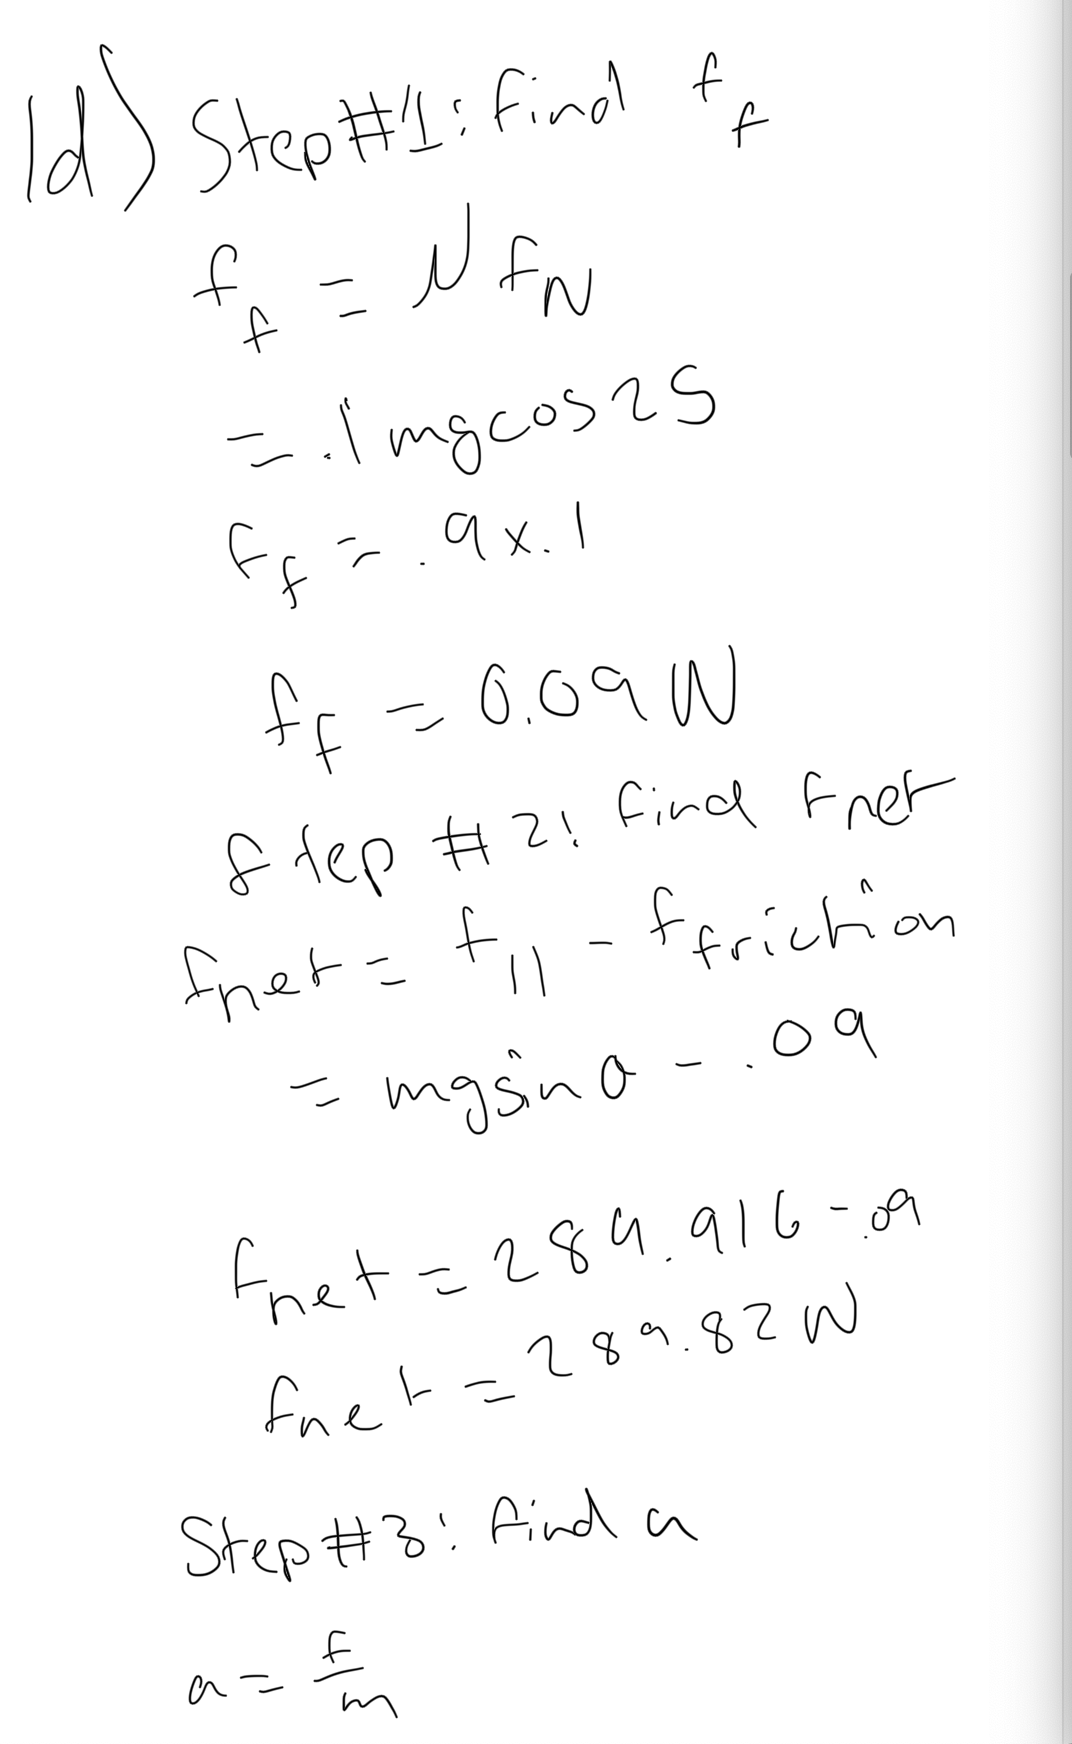 1d) Step #1: find f_f
f_f = μ F_N
= .1 mgcos25
F_f = .9x.1
f_f = 0.09 N
Step #2: find Fnet
Fnet = f_|| - f_friction
= mgsinθ - .09
Fnet = 289.916 - .09
Fnet = 289.82 N
Step #3: find a
a = f/m